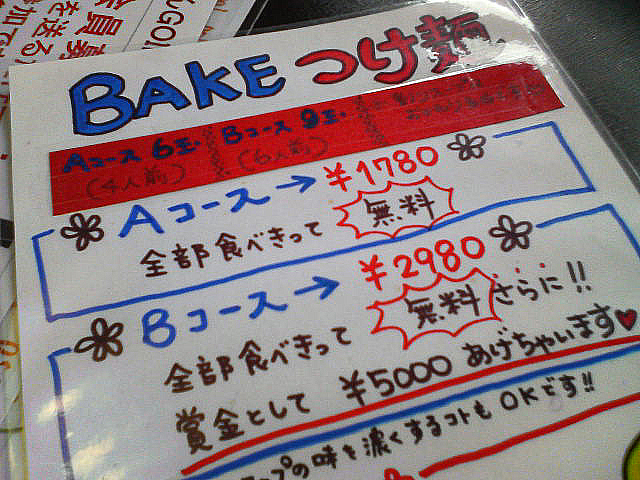 BAKE つけ麺
Aコース 6玉・ Bコース 9玉・
(4人前) (6人前)
Aコース → ¥1780
全部食べきって 無料
Bコース → ¥2980
全部食べきって 無料 さらに!!
賞金として ¥5000 あげちゃいます♥
プの味を濃くするコトもOKです!!